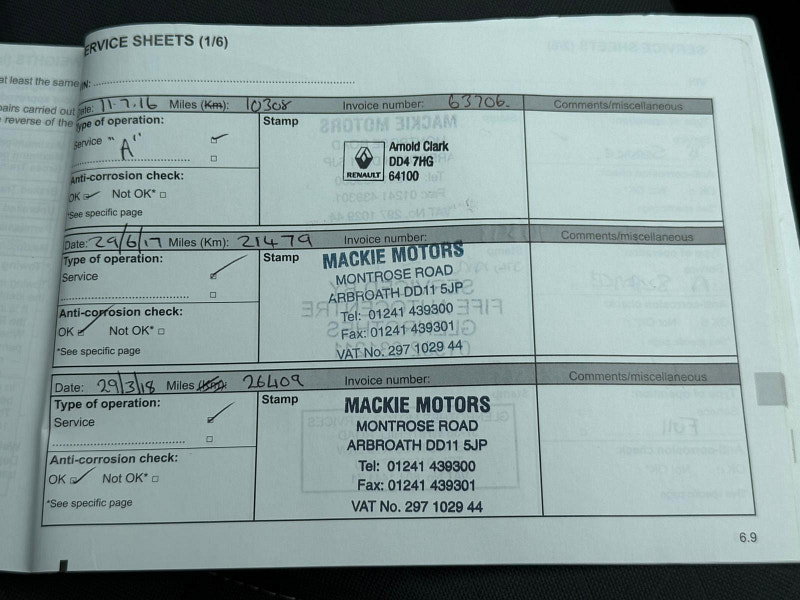 ERVICE SHEETS (1/6)
at least the same
N:
airs carried out
reverse of the
Date: 11.7.16 Miles (Km): 10308 Invoice number: 63706. Comments/miscellaneous
Type of operation: Stamp
Service "A"
RENAULT
Arnold Clark
DD4 7HG
64100
Anti-corrosion check:
OK Not OK*
*See specific page
Date: 29/6/17 Miles (Km): 21479 Invoice number: Comments/miscellaneous
Type of operation: Stamp
Service
MACKIE MOTORS
MONTROSE ROAD
ARBROATH DD11 5JP
Tel: 01241 439300
Fax: 01241 439301
VAT No. 297 1029 44
Anti-corrosion check:
OK Not OK*
*See specific page
Date: 29/3/18 Miles (Km): 26409 Invoice number: Comments/miscellaneous
Type of operation: Stamp
Service
MACKIE MOTORS
MONTROSE ROAD
ARBROATH DD11 5JP
Tel: 01241 439300
Fax: 01241 439301
VAT No. 297 1029 44
Anti-corrosion check:
OK Not OK*
*See specific page
6.9